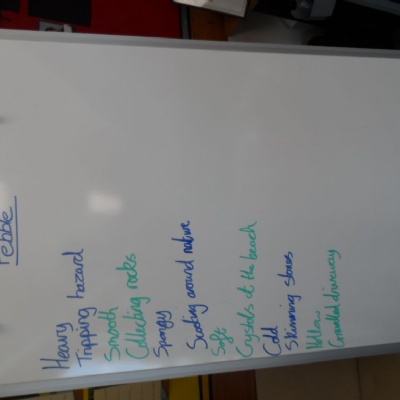 Pebble
Heavy
Tripping hazard
Smooth
Collecting rocks
Spongy
around nature
Soft
Crystals at the beach
Cold
Skimming stones
driveway